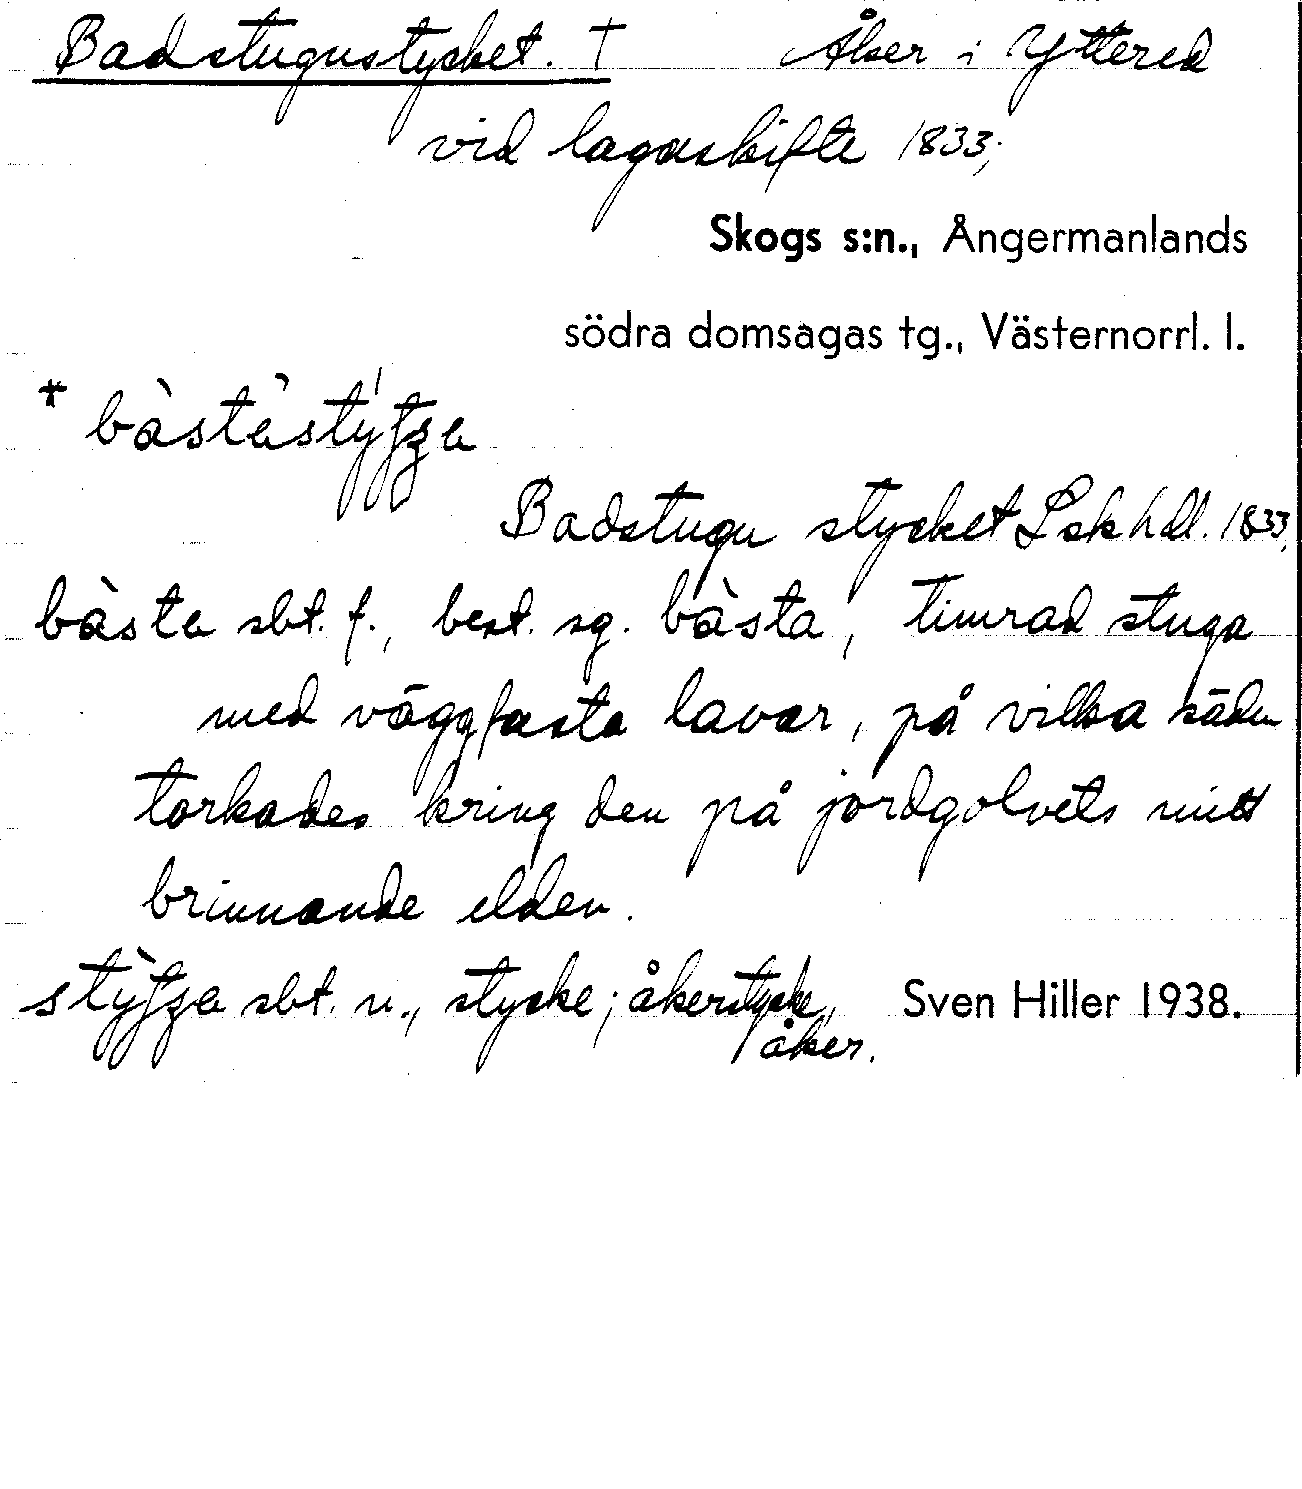 Badstugustycket. † Åker i Yttered
vid lagaskifte 1833;
Skogs s:n., Ångermanlands
södra domsagas tg., Västernorrl. l.
* bàstàstýʃʒa
Badstugu stycket Lsk hdl. 1833,
bàsta sbt. f., best. sg. bàsta, timrad stuga
med väggfasta lavar, på vilka säden
torkades kring den på jordgolvets mitt
brinnande elden.
stỳʃʒa sbt. n., stycke; åkerstycke, Sven Hiller 1938.
åker.